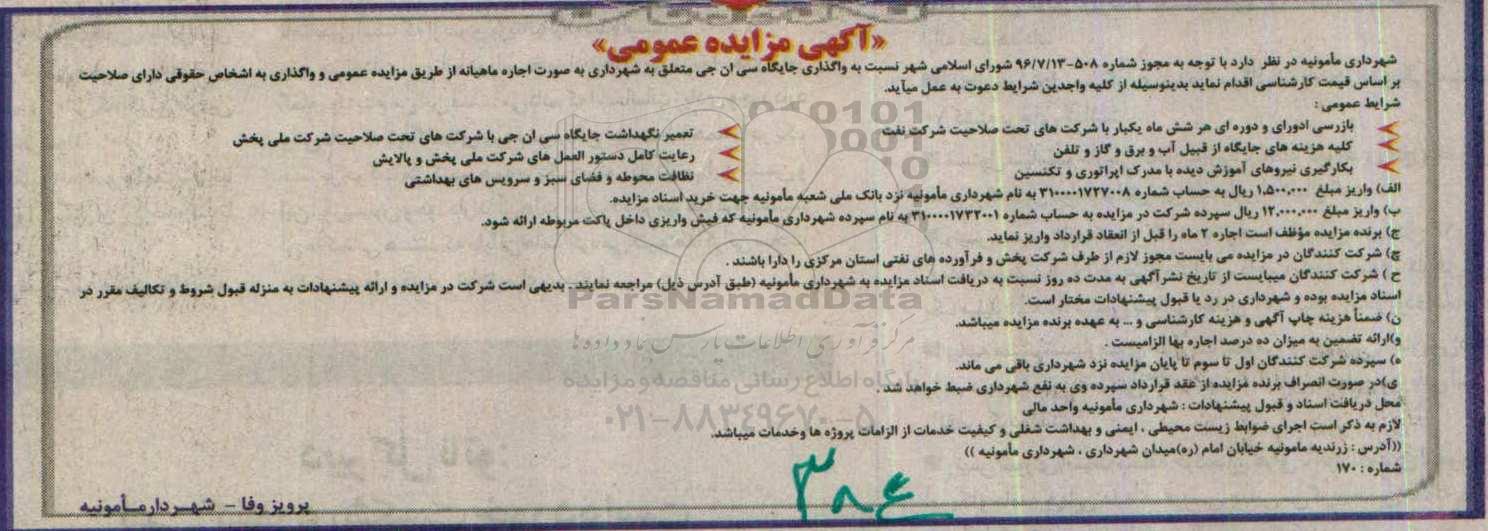 «آگهی مزایده عمومی»
شهرداری مأمونیه در نظر دارد با توجه به مجوز شماره ۵۰۸-۹۶/۷/۱۳ شورای اسلامی شهر نسبت به واگذاری جایگاه سی ان جی متعلق به شهرداری به صورت اجاره ماهیانه از طریق مزایده عمومی و واگذاری به اشخاص حقوقی دارای صلاحیت
بر اساس قیمت کارشناسی اقدام نماید بدینوسیله از کلیه واجدین شرایط دعوت به عمل میآید.
شرایط عمومی :
بازرسی ادواری و دوره ای هر شش ماه یکبار با شرکت های تحت صلاحیت شرکت نفت
تعمیر نگهداشت جایگاه سی ان جی با شرکت های تحت صلاحیت شرکت ملی پخش
کلیه هزینه های جایگاه از قبیل آب و برق و گاز و تلفن
رعایت کامل دستور العمل های شرکت ملی پخش و پالایش
بکارگیری نیروهای آموزش دیده با مدرک اپراتوری و تکنسین
نظافت محوطه و فضای سبز و سرویس های بهداشتی
الف) واریز مبلغ ۱,۵۰۰,۰۰۰ ریال به حساب شماره ۳۱۰۰۰۰۱۷۲۷۰۰۸ به نام شهرداری مأمونیه نزد بانک ملی شعبه مأمونیه جهت خرید اسناد مزایده.
ب) واریز مبلغ ۱۲,۰۰۰,۰۰۰ ریال سپرده شرکت در مزایده به حساب شماره ۳۱۰۰۰۰۱۷۳۲۰۰۱ به نام سپرده شهرداری مأمونیه که فیش واریزی داخل پاکت مربوطه ارائه شود.
ج) برنده مزایده مؤظف است اجاره ۲ ماه را قبل از انعقاد قرارداد واریز نماید.
چ) شرکت کنندگان در مزایده می بایست مجوز لازم از طرف شرکت پخش و فرآورده های نفتی استان مرکزی را دارا باشند .
ح ) شرکت کنندگان میبایست از تاریخ نشر آگهی به مدت ده روز نسبت به دریافت اسناد مزایده به شهرداری مأمونیه (طبق آدرس ذیل) مراجعه نمایند . بدیهی است شرکت در مزایده و ارائه پیشنهادات به منزله قبول شروط و تکالیف مقرر در
اسناد مزایده بوده و شهرداری در رد یا قبول پیشنهادات مختار است.
ن) ضمناً هزینه چاپ آگهی و هزینه کارشناسی و ... به عهده برنده مزایده میباشد.
و)ارائه تضمین به میزان ده درصد اجاره بها الزامیست .
ه) سپرده شرکت کنندگان اول تا سوم تا پایان مزایده نزد شهرداری باقی می ماند.
ی)در صورت انصراف برنده مزایده از عقد قرارداد سپرده وی به نفع شهرداری ضبط خواهد شد .
محل دریافت اسناد و قبول پیشنهادات : شهرداری مأمونیه واحد مالی
لازم به ذکر است اجرای ضوابط زیست محیطی ، ایمنی و بهداشت شغلی و کیفیت خدمات از الزامات پروژه ها وخدمات میباشد.
((آدرس : زرندیه مامونیه خیابان امام (ره)میدان شهرداری ، شهرداری مأمونیه ))
شماره : ۱۷۰
پرویز وفا – شهردارمأمونیه
۳۸۴
ParsNamadData
مرکز فرآوری اطلاعات پارس نماد داده ها
پایگاه اطلاع رسانی مناقصه و مزایده
۰۲۱-۸۸۳۴۹۶۷۰-۵